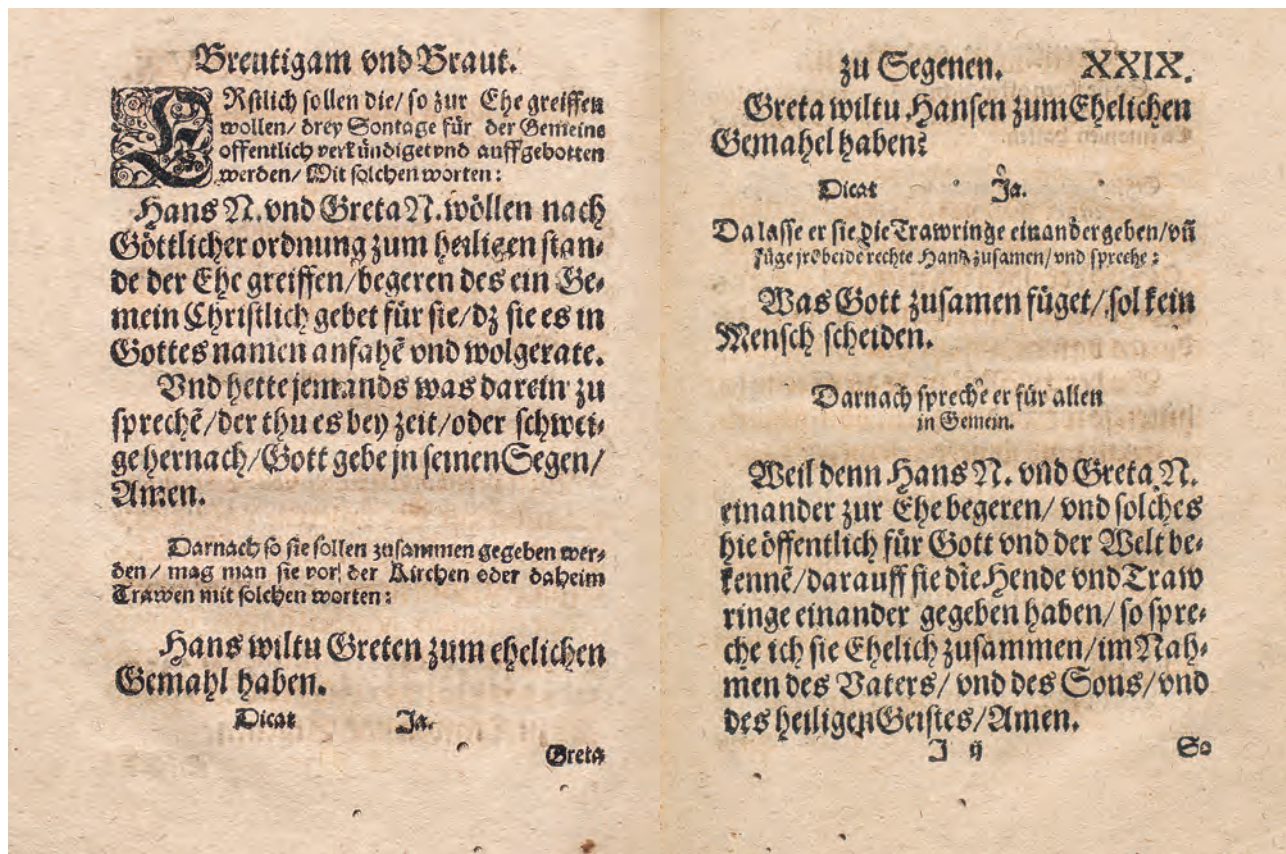 Breutigam vnd Braut.
ERstlich sollen die/ so zur Ehe greiffen
wollen/ drey Sontage für der Gemeine
offentlich verkündiget vnd auffgebotten
werden/ Mit solchen worten:
Hans N. vnd Greta N. wöllen nach
Göttlicher ordnung zum heiligen stan-
de der Ehe greiffen/ begeren des ein Ge-
mein Christlich gebet für sie/ dz sie es in
Gottes namen anfahē vnd wolgerate.
Vnd hette jemands was darein zu
sprechē/ der thu es bey zeit/ oder schwei-
ge hernach/ Gott gebe jn seinen Segen/
Amen.
Darnach so sie sollen zusammen gegeben wer-
den/ mag man sie vor der Kirchen oder daheim
Trawen mit solchen worten:
Hans wiltu Greten zum ehelichen
Gemahl haben.
Dicat Ja.
Greta
zu Segenen. XXIX.
Greta wiltu Hansen zum Ehelichen
Gemahel haben?
Dicat Ja.
Da lasse er sie die Trawringe einander geben/ vñ
füge jr beide rechte Hand zusamen/ vnd spreche:
Was Gott zusamen füget/ sol kein
Mensch scheiden.
Darnach spreche er für allen
in Gemein.
Weil denn Hans N. vnd Greta N.
einander zur Ehe begeren/ vnd solches
hie öffentlich für Gott vnd der Welt be-
kennē/ darauff sie die Hende vnd Traw
ringe einander gegeben haben/ so spre-
che ich sie Ehelich zusammen/ im Nah-
men des Vaters/ vnd des Sons/ vnd
des heiligen Geistes/ Amen.
J ij So